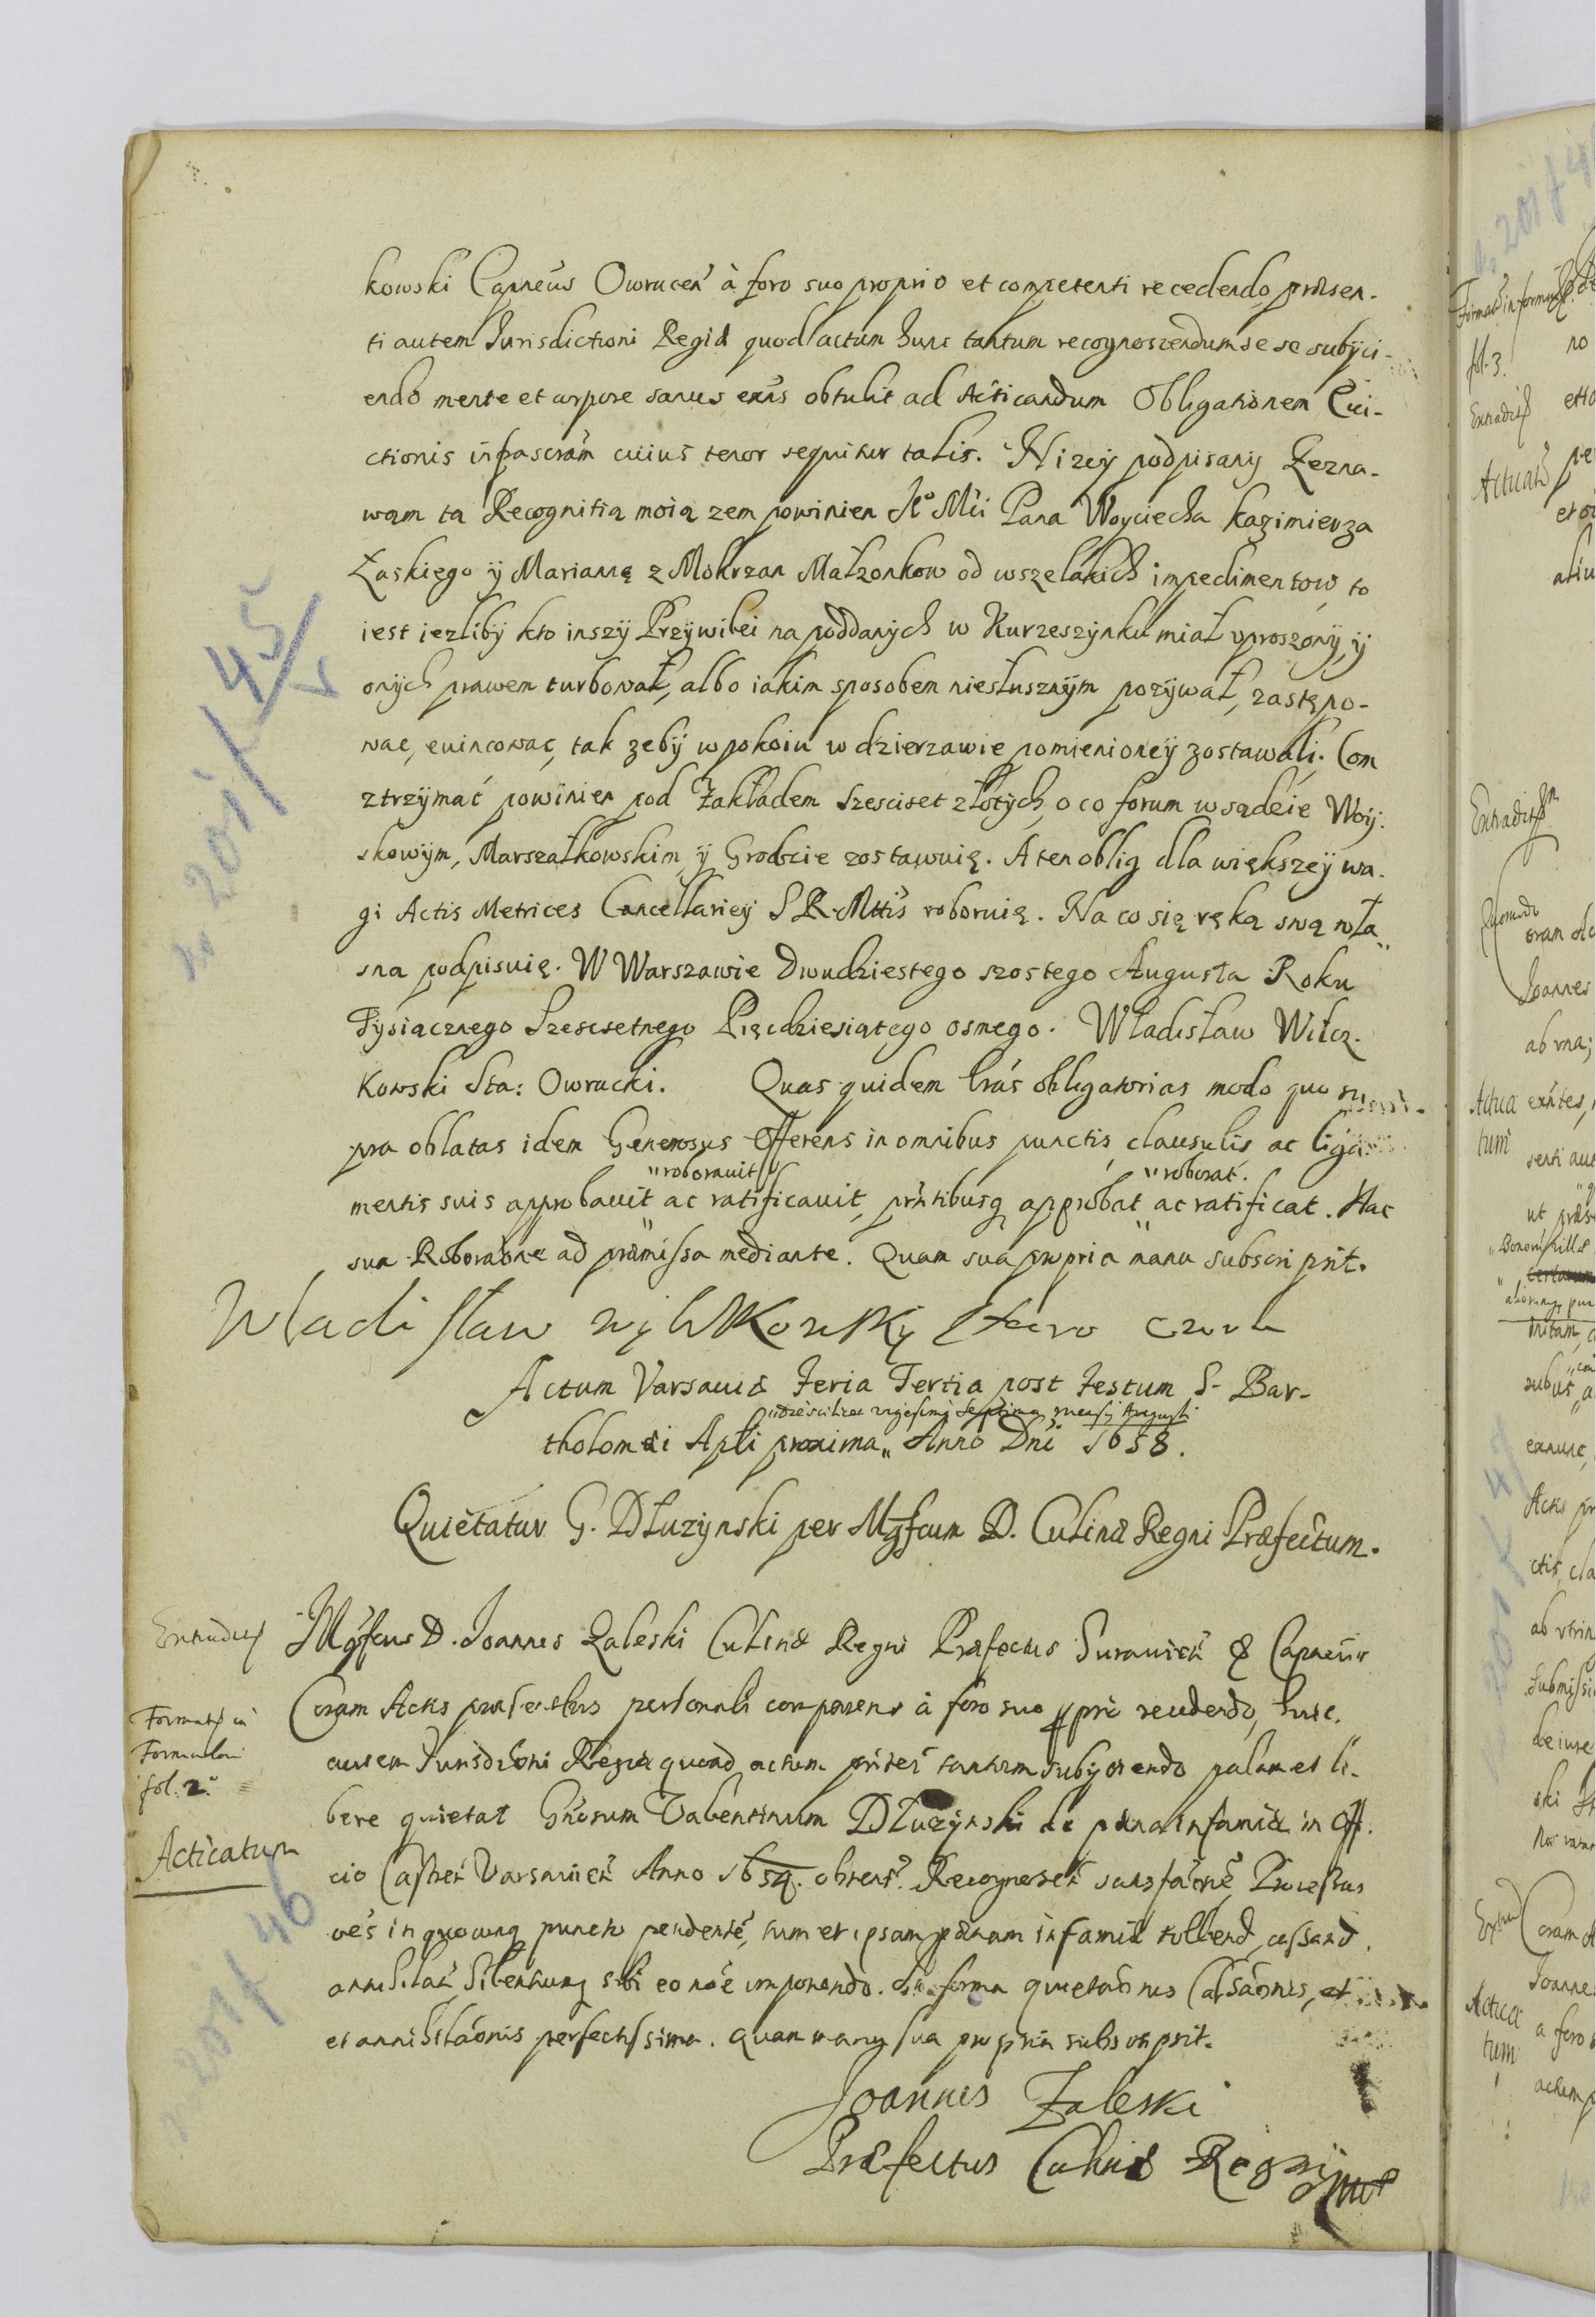 kowski Capneus Owrucen à foro suo proprio et competenti recedendo, præsen-
ti autem Jurisdictioni Regiæ quod actum hunc tantum recognoscendum se se subÿci-
endo mente et corpore sanus exns obtulit ad Acticandum Obligationem Evi-
ctionis infrascram cuius tenor sequitur talis. Nizeÿ podpisanÿ Zezna-
wam ta Recognitią moią zem powinien Je° Mci Pana Woyciecha Kazimierza
Łaskiego ÿ Marianę z Mokrzan Małzonkow od wszelakich impedimentow to
iest iezlibÿ kto inszÿ Przÿwilei na poddanÿch w Kurzeszÿnku miał vproszonÿ, ÿ
onÿch prawem turbował, albo iakim sposobem niesłusznÿm pozÿwał, zastępo-
wac, euincowac, tak zebÿ w pokoiu w dzierzawie pomienioneÿ zostawali. Com
ztrzÿmać powinien pod Zakładem Szesciset złotÿch, o co forum w sądzie Woÿ-
skowÿm, Marszałkowskim ÿ Grodzie zostawuię. A ten oblig dla większeÿ wa-
gi Actis Metrices Cancellarieÿ S R Mttis roboruię. Na co się ręką swą wła
sna podpisuię. W Warszawie Dwudziestego szostego Augusta Roku
Tysiącznego Szescsetnego Pięcdziesiątego osmego. Władisław Wilcz-
Kowski Sta: Owrucki. Quas quidem lrás obligatorias modo quo su
pra oblatas idem Generosus Offerens in omnibus punctis, clausulis ac liga
"roborauit "roborat.
mentis suis approbauit ac ratificauit, prntibusq approbat " ac ratificat. Hac
sua Roboraõne ad præmissa mediante. Quam sua propria manu subscripsit.
Wladislaw Wylkowsky
Actum Varsauiæ Feria Tertia post Festum S. Bar-
"die scilicet vigesima Septima mensis Augusti
tholomæi Apli proxima " Anno Dni 1658.
Quietatur G. Dłuzÿnski per Mgfcum D. Culinæ Regni Præfectum.
Extradit
Mgfcus D. Joannes Zaleski Culinæ Regni Præfectus Suravicen & Capneus
Formats in
Formulari
fol. 2.
Coram Actis præsentibus personali comparens à foro suo ppri recedendo, huic
autem Jurisdictioni Regiæ quoad actum prntem tantum subÿciendo palam et li-
bere quietat Gnosum Valentinum Dłuzÿnski de pæna infamiæ in Offi-
Acticatum
cio Castren Varsavien Anno 1654. obtent. Recognoscen satisfacõne, Processus
oẽs in quocunq puncto pendentẽ, tum et ipsam pænam infamiæ tollend, cassand
annihilan Silentiumq sibi eo noẽ imponendo. In forma quietationis Cassaõnis, et
et annihilaõnis perfectissima. Quam manu sua propria subscripsit.
Joannes Zaleski
Præfectus Culinæ Regni mp
201 f 45
201 f 46